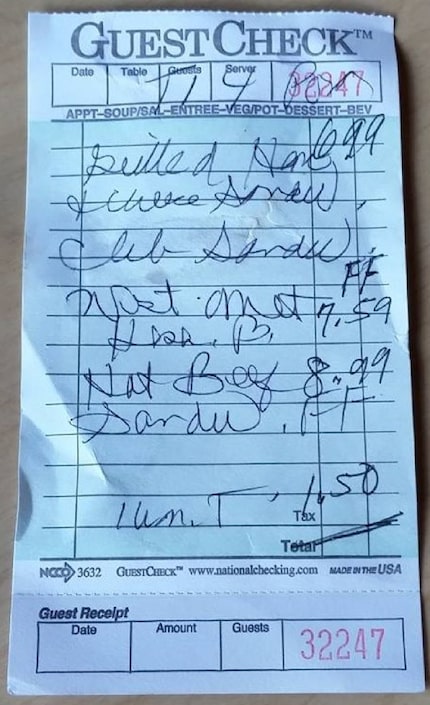 GUESTCHECK™
Date Table Guests Server
T 4 32247
APPT–SOUP/SAL–ENTREE–VEG/POT–DESSERT–BEV
Grilled Ham 6 99
& cheese Sandw.
Club Sandw.
FF
West omelet 7.59
Hom. B.
Hot Beef 8.99
Sandw. FF
1 un. T. 1.50
Tax
Total
NCCO 3632 GUESTCHECK™ www.nationalchecking.com MADE IN THE USA
Guest Receipt
Date Amount Guests
32247